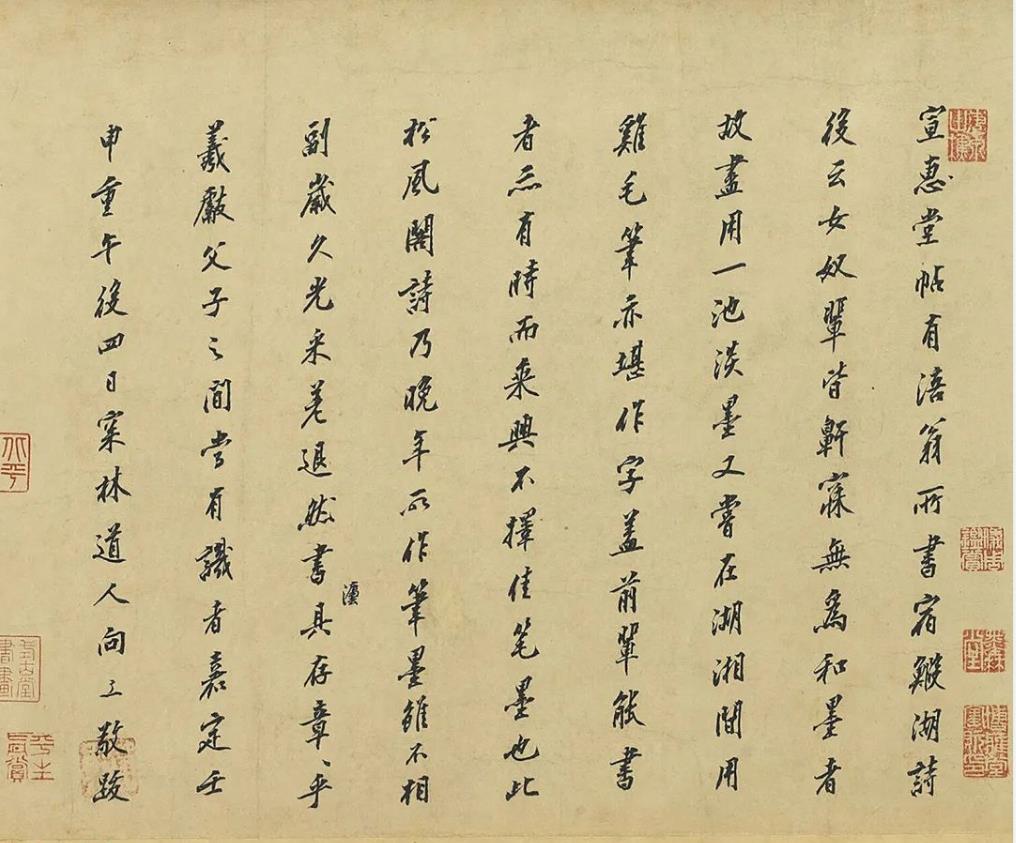 宣惠堂帖有涪翁所書宿湖詩
後云女奴輩皆鼾寐無爲和墨者
故盡用一池淡墨又嘗在湖湘間用
雞毛筆亦堪作字蓋前輩能書
者亦有時而乘興不擇佳笔墨也此
松風閣詩乃晚年所作筆墨雖不相
副歲久光采差退然書灋具存章々乎
羲獻父子之間當有識者嘉定壬
申重午後四日林道人向敬跋